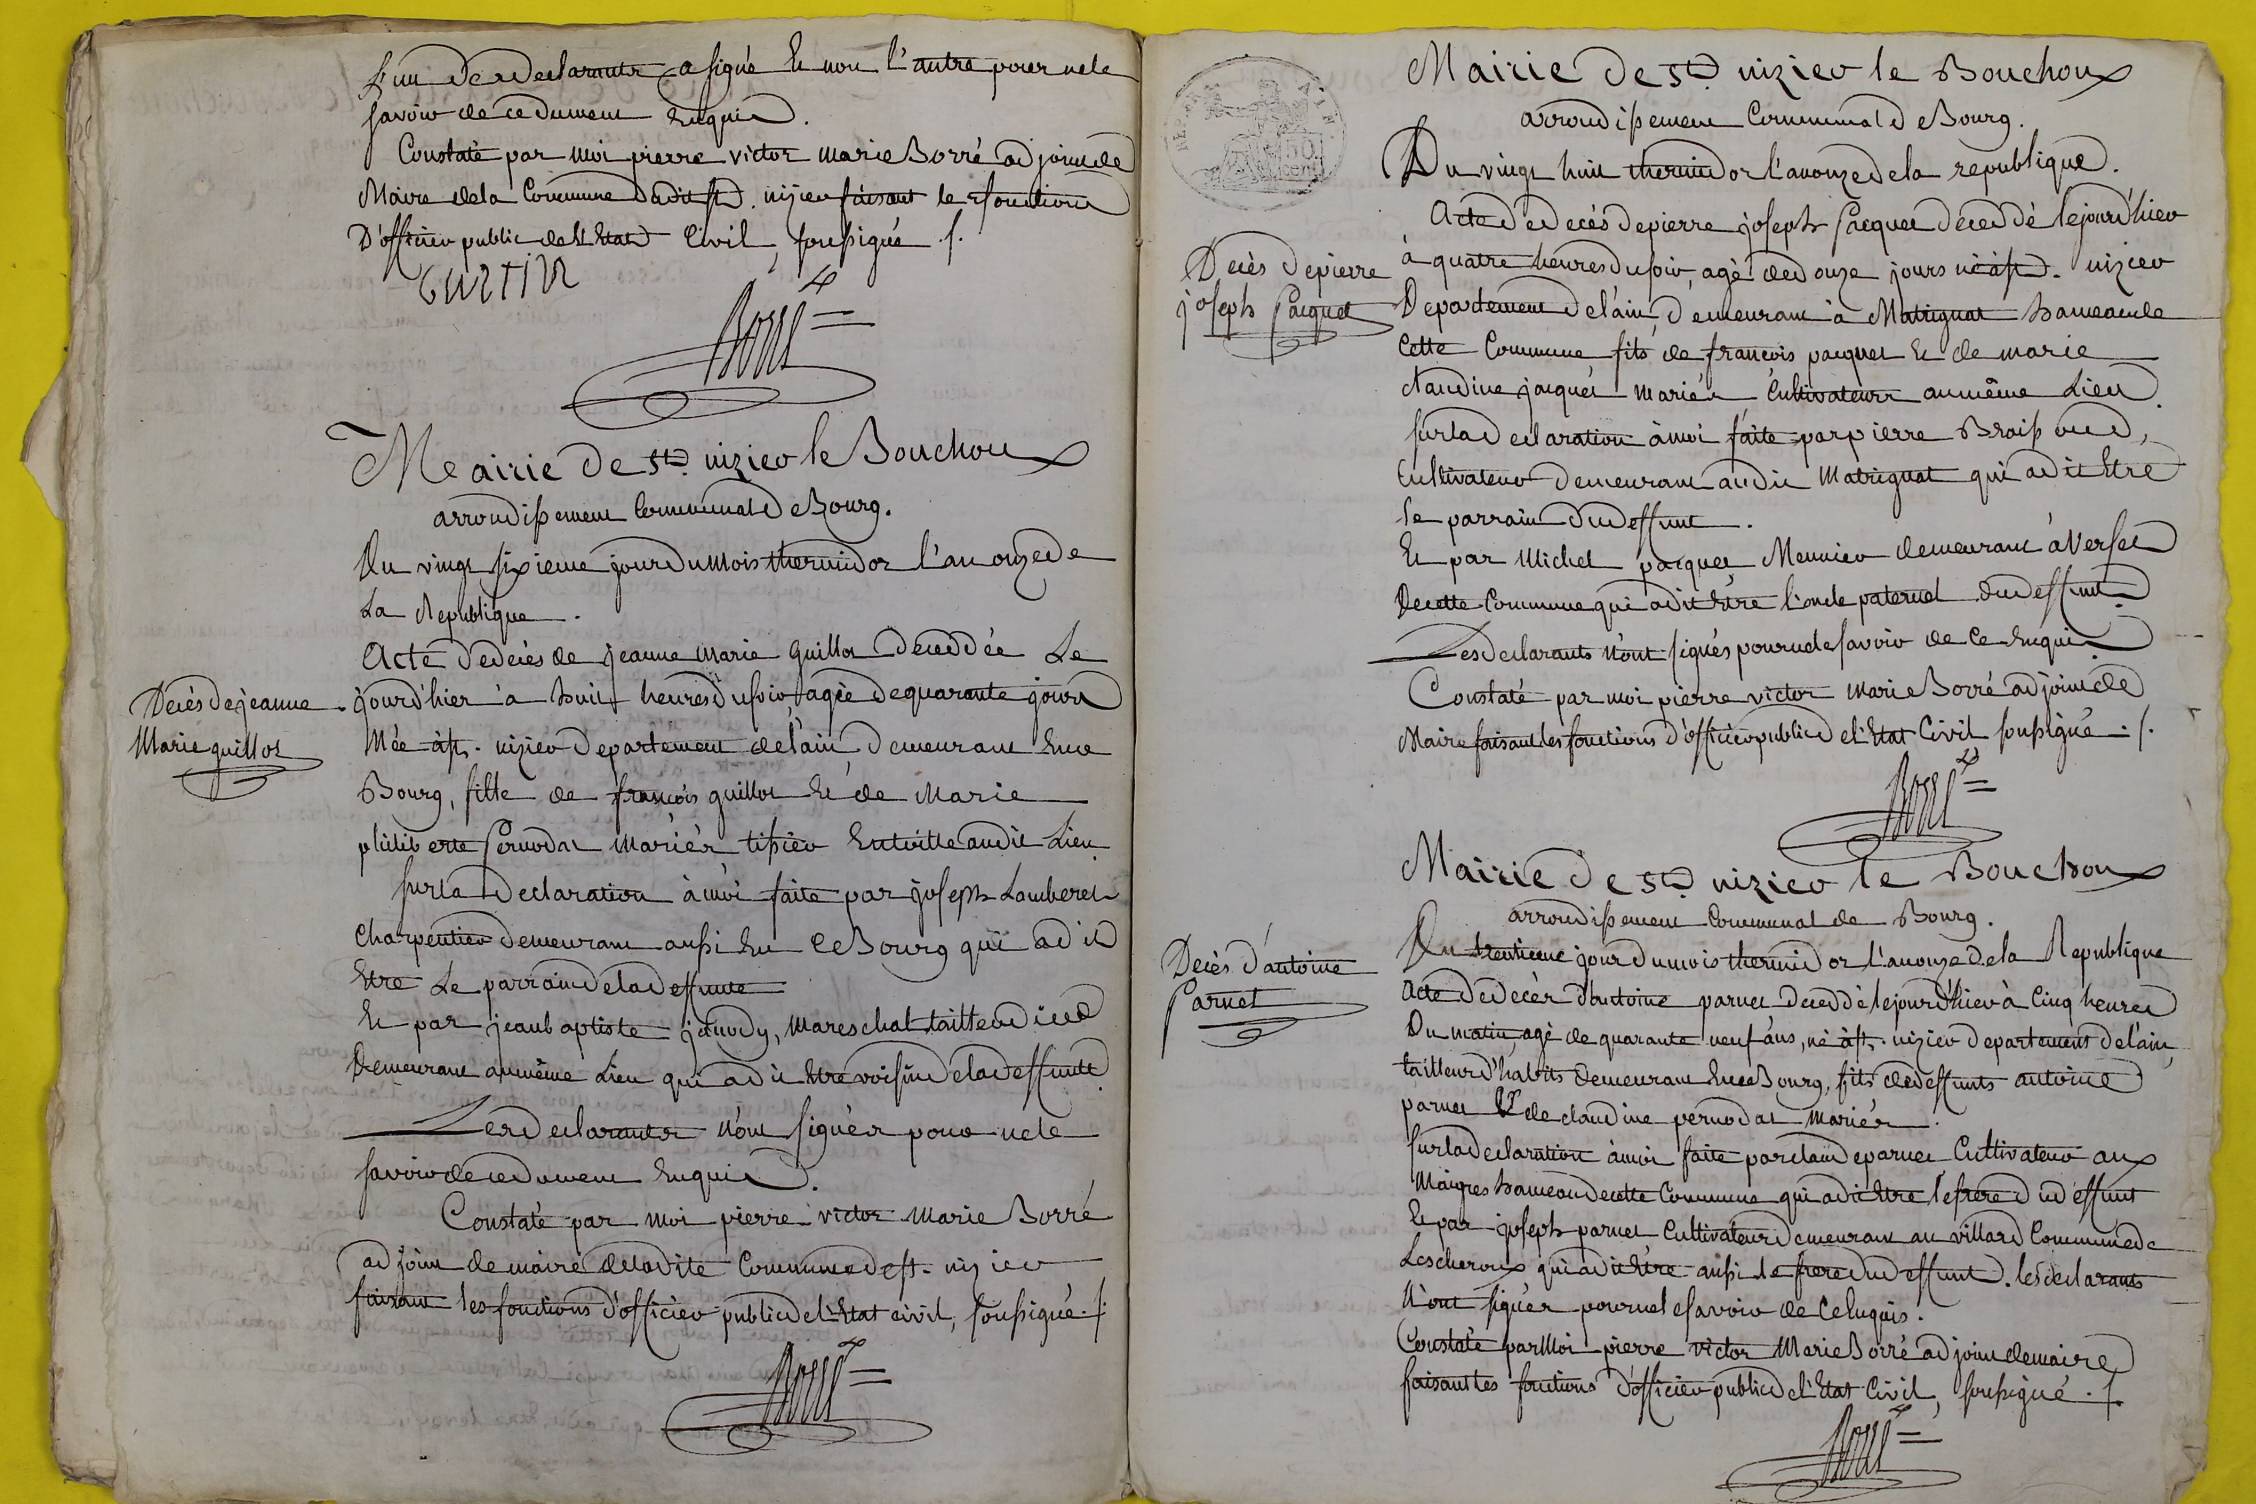 L'un des declarants a signé et non l'autre pour ne le
savoir de ce dument enquis.
Constaté par moi pierre victor marie Borré adjoint de
Maire de la Commune dudit st. nizier faisant les fonctions
D'officier public de l'Etat Civil, soussigné ./.
CURTIN
Borré
Mairie de st. nizier le Bouchoux
arrondissement Communal de Bourg.
Du vingt sixieme jour du mois thermidor l'an onze de
La Republique.
Acte de decés de jeanne marie guillot decedée Le
jourd'hier à huit heures du soir, agée de quarante jours
Decés de jeanne
Marie guillot
Née à st. nizier departement de l'ain, demeurant en ce
Bourg, fille de françois guillot et de Marie
philiberte pernodat mariés tissier en toille audit Lieu.
sur la declaration à moi faite par joseph Lamberet
Charpentier demeurant aussi en ce Bourg qui a dit
Etre Le parrain de la deffunte
Et par jean baptiste janody, mareschal taillendier
Demeurant au même Lieu qui a dit Etre voisin de la deffunte
Les declarants n'ont signés pour ne le
savoir de ce dument enquis.
Constaté par moi pierre victor marie Borré
adjoint de maire de la dite Commune de st. nizier
faisant les fonctions d'officier public de l'Etat civil, soussigné ./.
Borré
Mairie de st. nizier le Bouchoux
arrondissement Communal de Bourg.
Du vingt huit thermidor l'an onze de la republique.
Acte de decés de pierre joseph pacquet decedé le jourd'hier
à quatre heures du soir, agé de douze jours né à st. nizier
Decès de pierre
joseph pacquet
Departement de l'ain, demeurant à Matrignat hameau de
Cette Commune fils de françois pacquet et de marie
claudine jacquet mariés Cultivateurs au même Lieu.
sur la declaration à moi faite par pierre Braissoud,
Cultivateur demeurant audit Matrignat qui a dit Etre
le parrain du deffunt.
Et par Michel pacquet Meunier demeurant à Verset
De cette Commune qui a dit Etre l'oncle paternel du deffunt
Les declarants n'ont signés pour ne le savoir de ce enquis
Constaté par moi pierre victor marie Borré adjoint de
Maire faisant les fonctions d'officier public de l'Etat Civil soussigné ./.
Borré
Mairie de st. nizier le Bouchoux
arrondissement Communal de Bourg.
Du trentieme jour du mois thermidor l'an onze de la Republique
Decès d'antoine
Parnet
Acte de decés d'antoine parnet decedé le jourd'hier à Cinq heures
Du matin, agé de quarante neuf ans, né à st. nizier departement de l'ain,
tailleur d'habits demeurant en ce Bourg, fils de deffunts antoine
parnet Et de claudine pernodat mariés.
sur la declaration à moi faite par claude parnet Cultivateur aux
Maigres hameau de cette Commune qui a dit Etre le frere du deffunt
Et par joseph parnet Cultivateur demeurant au villard Commune de
Lescheroux qui a dit Etre aussi le frere du deffunt. les declarants
N'ont signés pour ne le savoir de ce enquis.
Constaté par Moi pierre victor Marie Borré adjoint de maire
faisant les fonctions d'officier public de l'Etat Civil, soussigné ./.
Borré